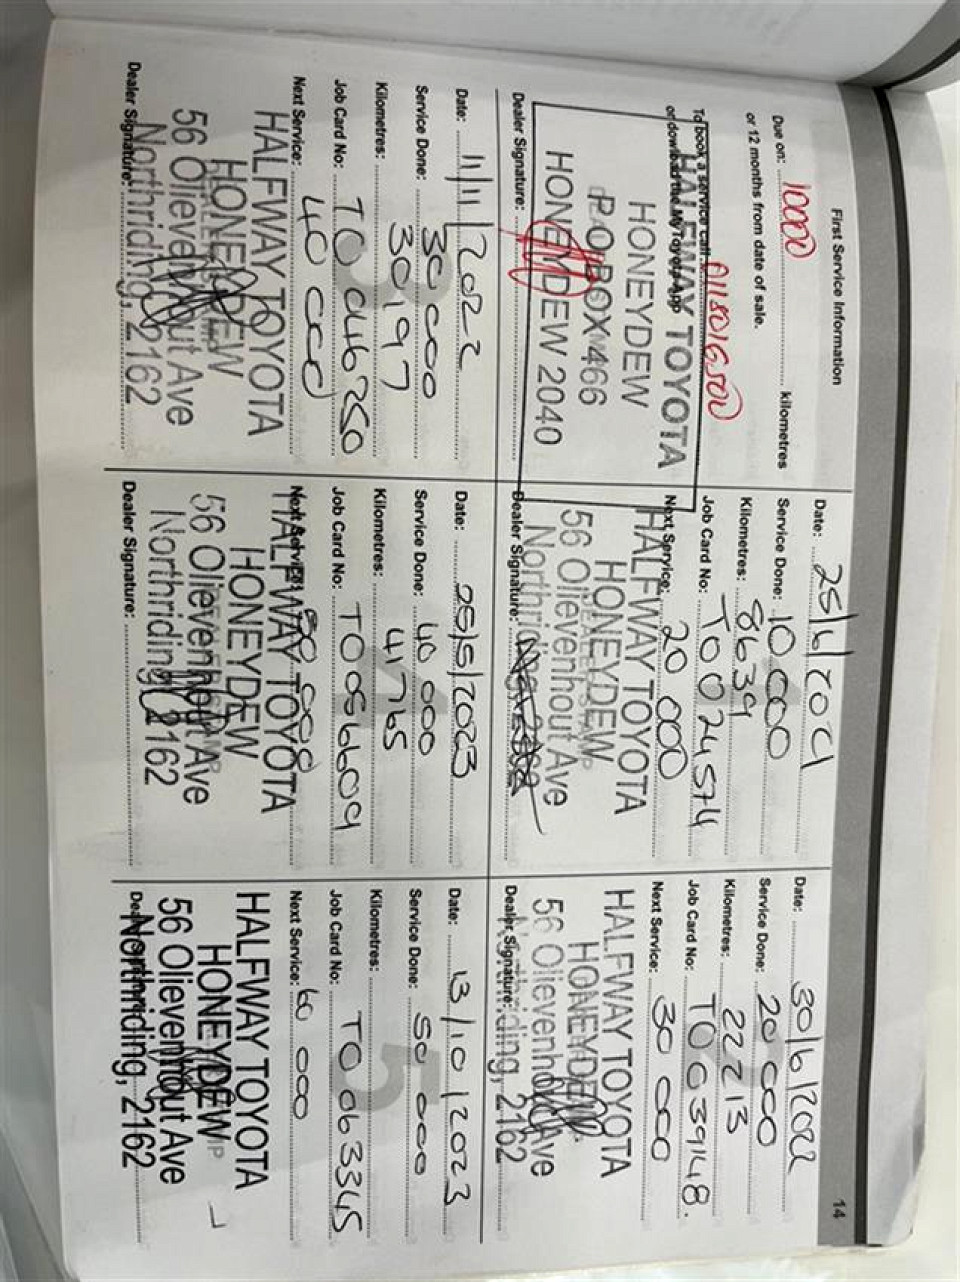 14
First Service Information
Due on: 10000 kilometres
or 12 months from date of sale.
To book a service call 0118016500
or download the MyToyota App
HALFWAY TOYOTA
HONEYDEW
P.O BOX 466
HONEYDEW 2040
Dealer Signature:
Date: 25/6/2021
Service Done: 10 000
Kilometres: 8639
Job Card No: T0024574
Next Service: 20 000
HALFWAY TOYOTA
HONEYDEW
56 Olievenhout Ave
Northriding, 2162
Dealer Signature:
Date: 30/6/2022
Service Done: 20 000
Kilometres: 22213
Job Card No: T0039148.
Next Service: 30 000
HALFWAY TOYOTA
HONEYDEW
56 Olievenhout Ave
Northriding, 2162
Dealer Signature:
Date: 11/11/2022
Service Done: 30 000
Kilometres: 30197
Job Card No: T0046250
Next Service: 40 000
HALFWAY TOYOTA
HONEYDEW
56 Olievenhout Ave
Northriding, 2162
Dealer Signature:
Date: 25/5/2023
Service Done: 40 000
Kilometres: 41765
Job Card No: T0056609
Next Service: 50 000
HALFWAY TOYOTA
HONEYDEW
56 Olievenhout Ave
Northriding, 2162
Dealer Signature:
Date: 13/10/2023
Service Done: 50 000
Kilometres:
Job Card No: T0063345
Next Service: 60 000
HALFWAY TOYOTA
HONEYDEW
56 Olievenhout Ave
Northriding, 2162
Dealer Signature: